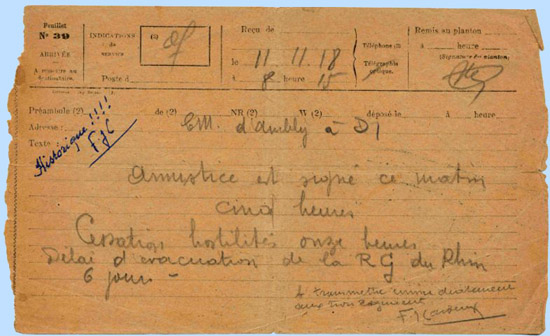 Feuillet
N° 39
ARRIVÉE
A remettre au
destinataire.
INDICATIONS
de
SERVICE
(1)
Posté d
Reçu de
le 11.11.18
à 8 heure 15
Téléphone (2)
Télégraphie
optique.
Remis au planton
à heure
(Signature du planton)
Préambule (2) de (2) NR (2) W (2) déposé le à heure
Adresse : EM. d'Ambly à DI
Texte :
Historique!!!!
FJC
Armistice est signé ce matin
cinq heures
Cessation hostilités onze heures
Délai d'évacuation de la RG du Rhin
6 jours -
A transmettre immédiatement
aux trois Régiments